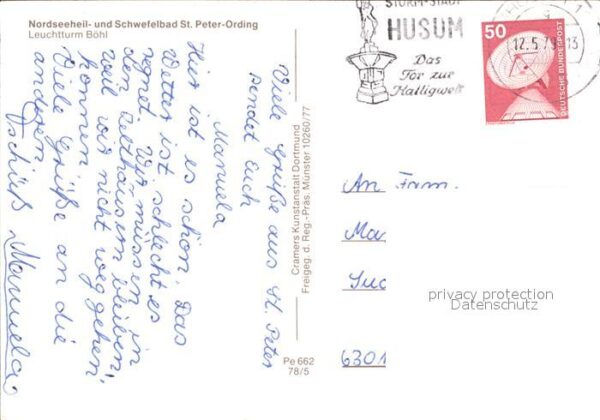 Nordseeheil- und Schwefelbad St. Peter-Ording
Leuchtturm Böhl
STURM-STADT
HUSUM
Das
Tor zur
Halligwelt
50
DEUTSCHE BUNDESPOST
Viele Grüße aus St. Peter
sendet Euch
Manuela
Hier ist es schön. Das
Wetter ist schlecht es
regnet. Wir müssen in
den Zelthäusern bleiben,
weil wir nicht weg gehen
können.
Viele Grüße an die
anderen
Tschüß Manuela
Cramers Kunstanstalt Dortmund
Freigeg. d. Reg.-Präs. Münster 10260/77
Pe 662
78/5
An Fam.
Ma
6301
privacy protection
Datenschutz